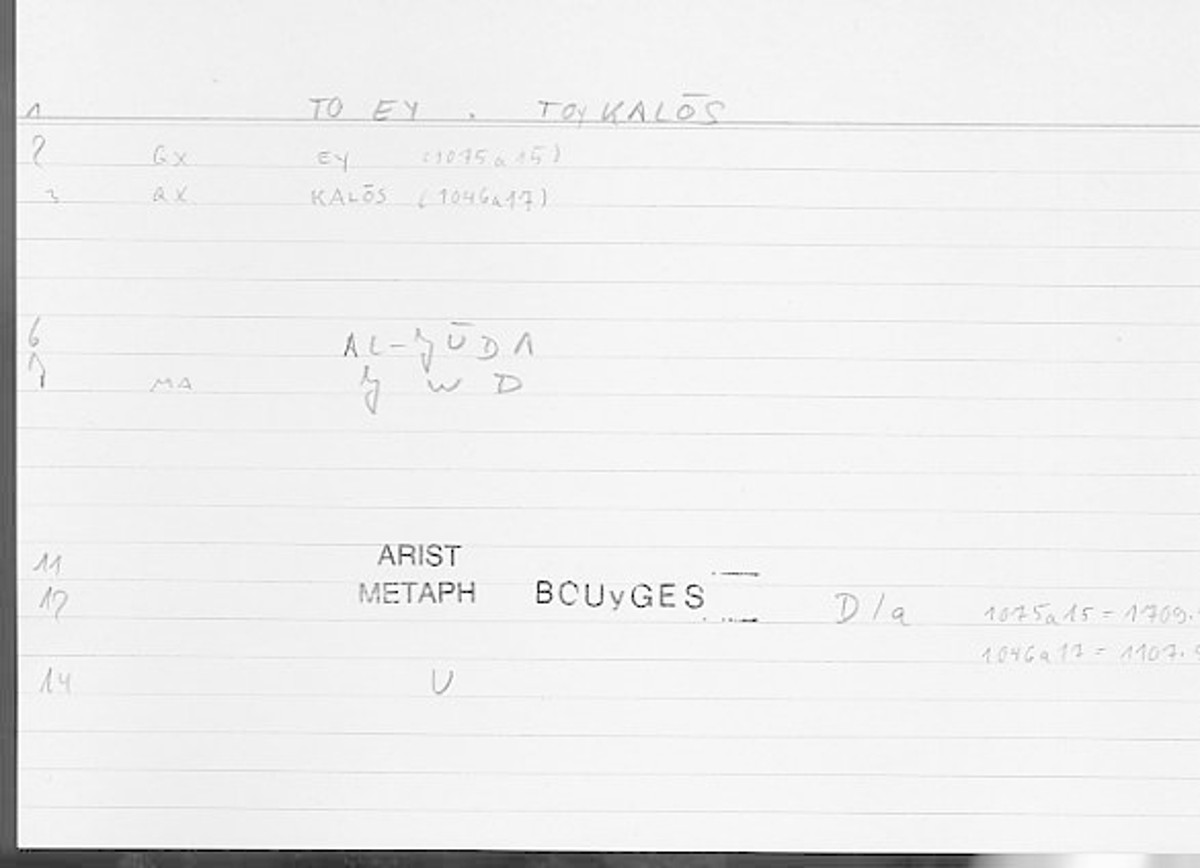 1 TO EY . TOy KALŌS
2 GX EY (1075a15)
3 GX KALŌS (1046a17)
6 AL-ǧŪDA
7 MA ǧ W D
11 ARIST
12 METAPH BOUyGES D/a 1075a15 = 1709.
1046a17 = 1107.
14 U